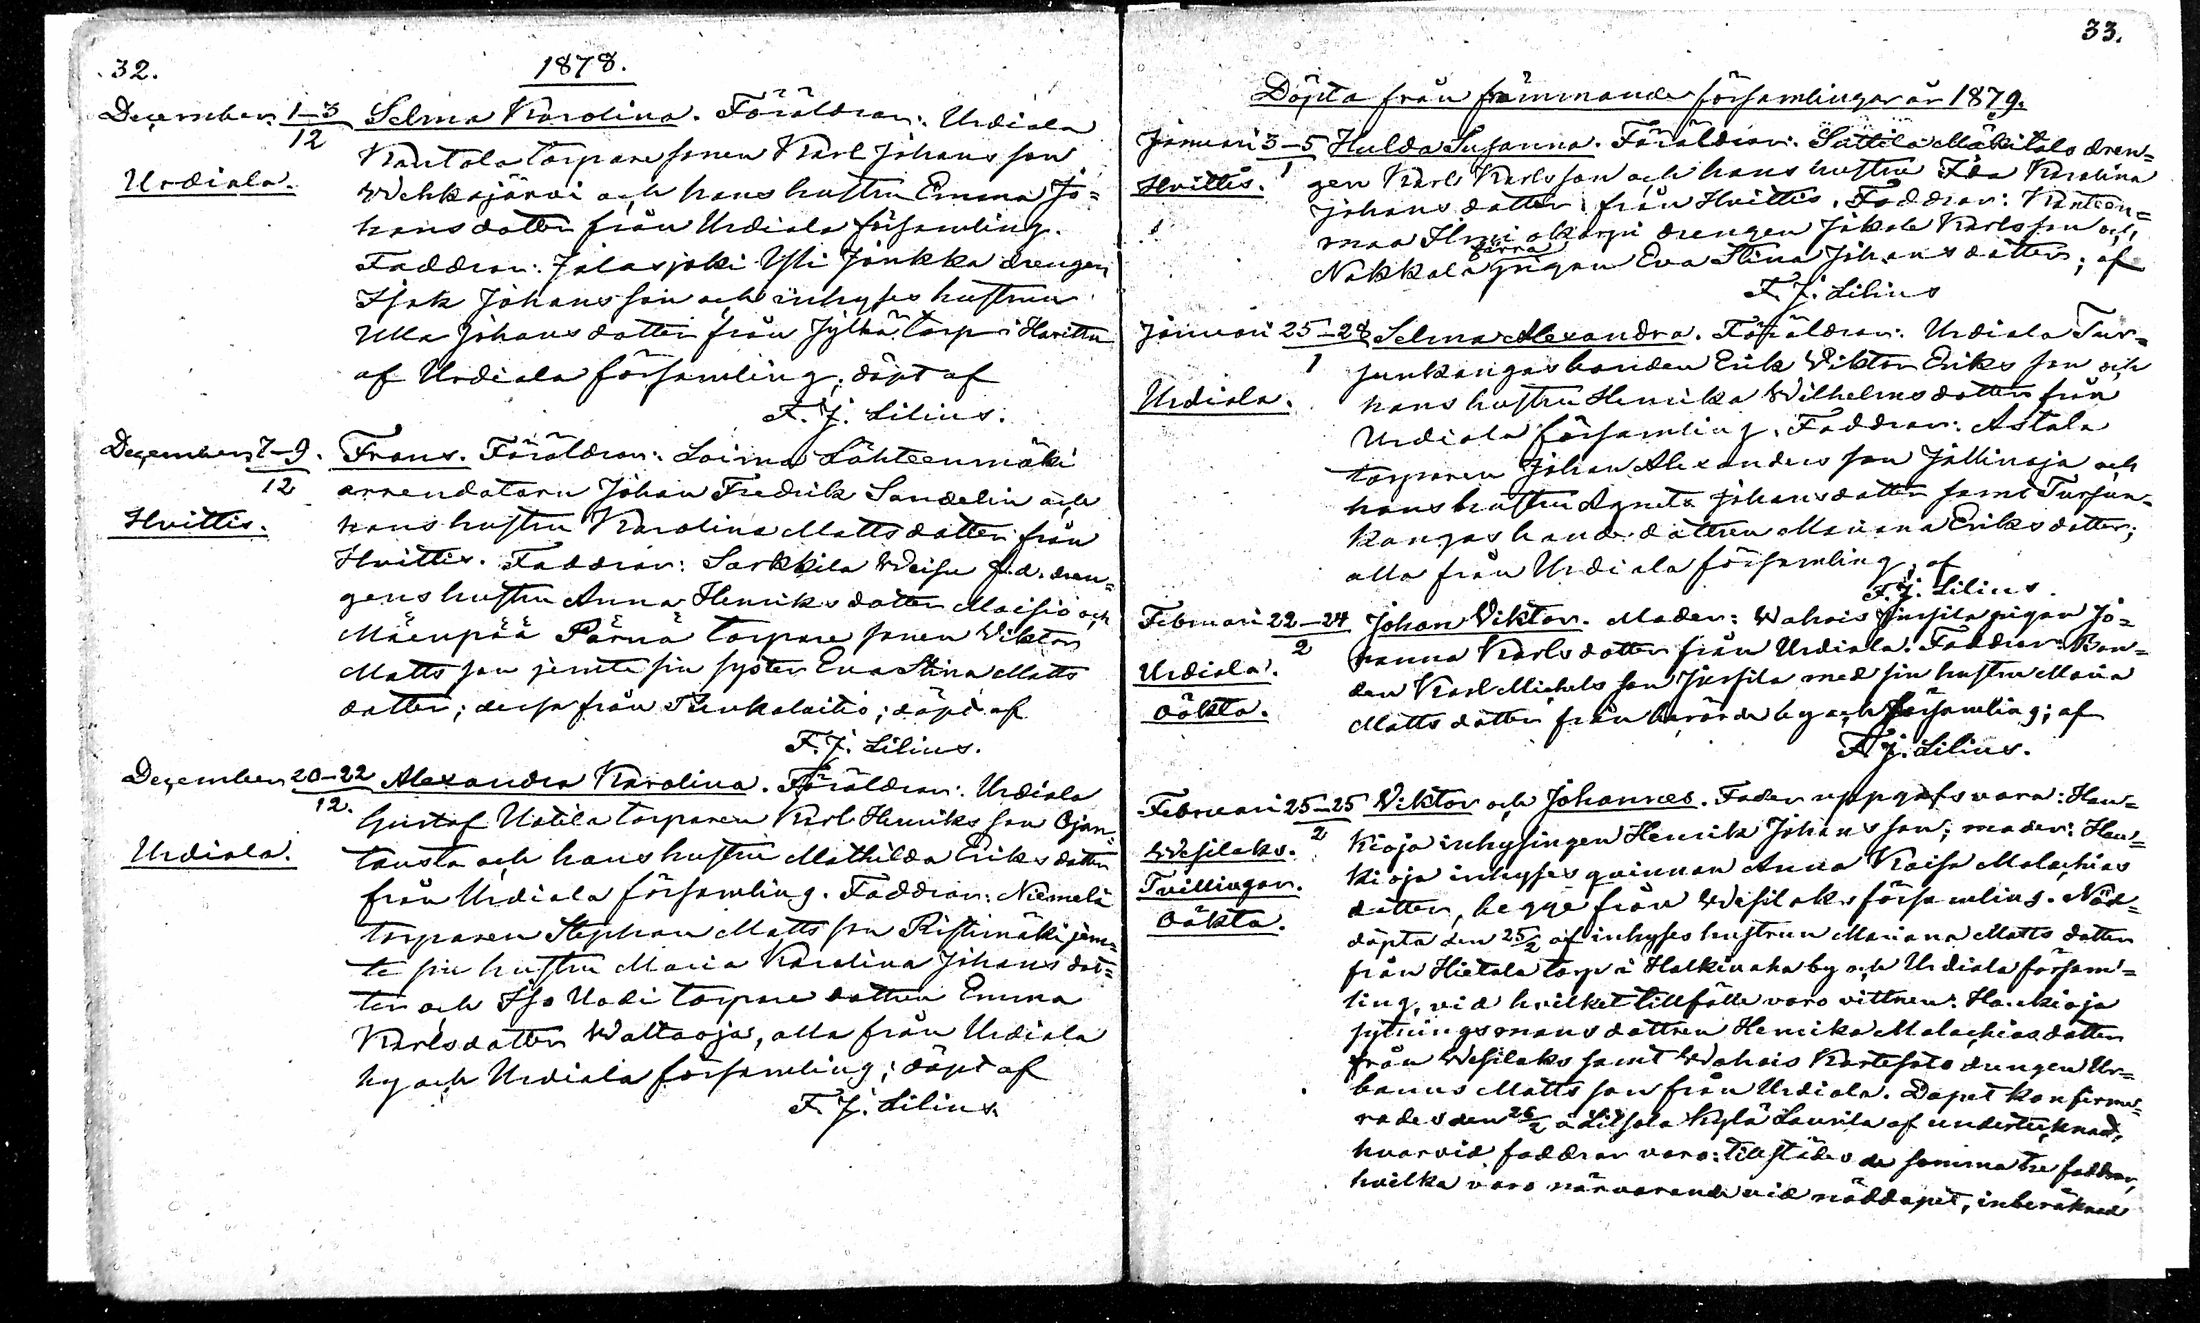 32.
1878.
December 1–3/12 Selma Karolina. Föräldrar: Urdiala
Kantola torparesonen Karl Johansson
Urdiala.
Wehkajärvi och hans hustru Emma Jo=
hansdotter från Urdiala församling.
Faddrar: Jalasjoki Yli Junkka drengen
Isak Johansson och inhyses hustrun
Ulla Johansdotter från Jylhä torp i Haritu
af Urdiala församling; döpt af
F. J. Lilius.
December 7–9/12. Frans. Föräldrar: Loima Lähteenmäki
arrendatorn Johan Fredrik Sandelin och
Hvittis.
hans hustru Karolina Mattsdotter från
Hvittis. Faddrar: Sarkkila Weisu f.d. dren=
gens hustru Anna Henriksdotter Maisio och
Mäenpää Pärnä torpare sonen Viktor
Mattsson jemte sin syster Eva Stina Matts
dotter; dessa från Punkalaitio; döpt af
F. J. Lilius.
December 20–22/12. Alexandra Karolina. Föräldrar: Urdiala
Gustaf Uotila torparen Karl Henriksson Ojan=
Urdiala.
tausta och hans hustru Mathilda Eriksdotter
från Urdiala församling. Faddrar: Niemelä
torparen Stephan Mattsson Ristimäki jem=
te sin hustru Maria Karolina Johansdot=
ter och Iso Uodi torpare dottren Emma
Karlsdotter Waltaoja, alla från Urdiala
by och Urdiala församling; döpt af
F. J. Lilius.
33.
Döpta från främmande församlingar år 1879.
Januari 3–5/1 Hulda Susanna. Föräldrar: Suttila Mäkitalo dren=
Hvittis.
gen Karl Karlsson och hans hustru Ida Karolina
Johansdotter från Hvittis. Faddrar:
maa drengen Jakob Karlsson och
Nokkala Färra pigan Eva Stina Johansdotter; af
F. J. Lilius
Januari 25–28/1 Selma Alexandra. Föräldrar: Urdiala Tur=
junkangas bonden Erik Viktor Eriksson och
Urdiala.
hans hustru Henrika Wilhelmsdotter från
Urdiala församling. Faddrar: Astala
torparen Johan Alexandersson Jallinoja och
hans hustru Agneta Johansdotter samt Turjun=
kangas bondedottren Mariana Eriksdotter;
alla från Urdiala församling; af
F. J. Lilius.
Februari 22–24/2 Johan Viktor. Moder: Wahois Jussila pigan Jo=
hanna Karlsdotter från Urdiala. Faddrar: Bon=
Urdiala.
den Karl Michelsson Jussila med sin hustru Maria
Oäkta.
Mattsdotter från berörde by och församling; af
F. J. Lilius.
Februari 25–25/2 Viktor och Johannes. Fader uppgafs vara: Hau=
Wesilaks.
kioja inhysingen Henrik Johansson; moder: Hau=
Tvillingar.
kioja inhyses qvinnan Anna Kaisa Malachias
Oäkta.
dotter, begge från Wesilaks församling. Nöd=
döpta den 25/2 af inhyses hustrun Mariana Mattsdotter
från Hietala torp i Halkivaha by och Urdiala försam=
ling, vid hvilket tillfälle voro vittnen: Haukioja
sytningsmansdottren Henrika Malachiasdotter
från Wesilaks samt Wahois Kortesoto drengen Ur=
banus Mattsson från Urdiala. Dopet konfirme=
rades den 26/2 å Litsola Kylä Laurila af undertecknad,
hvarvid faddrar voro: tillstädes de samma tre faddrar,
hvilka voro närvarande vid nöddopet, inberäknad